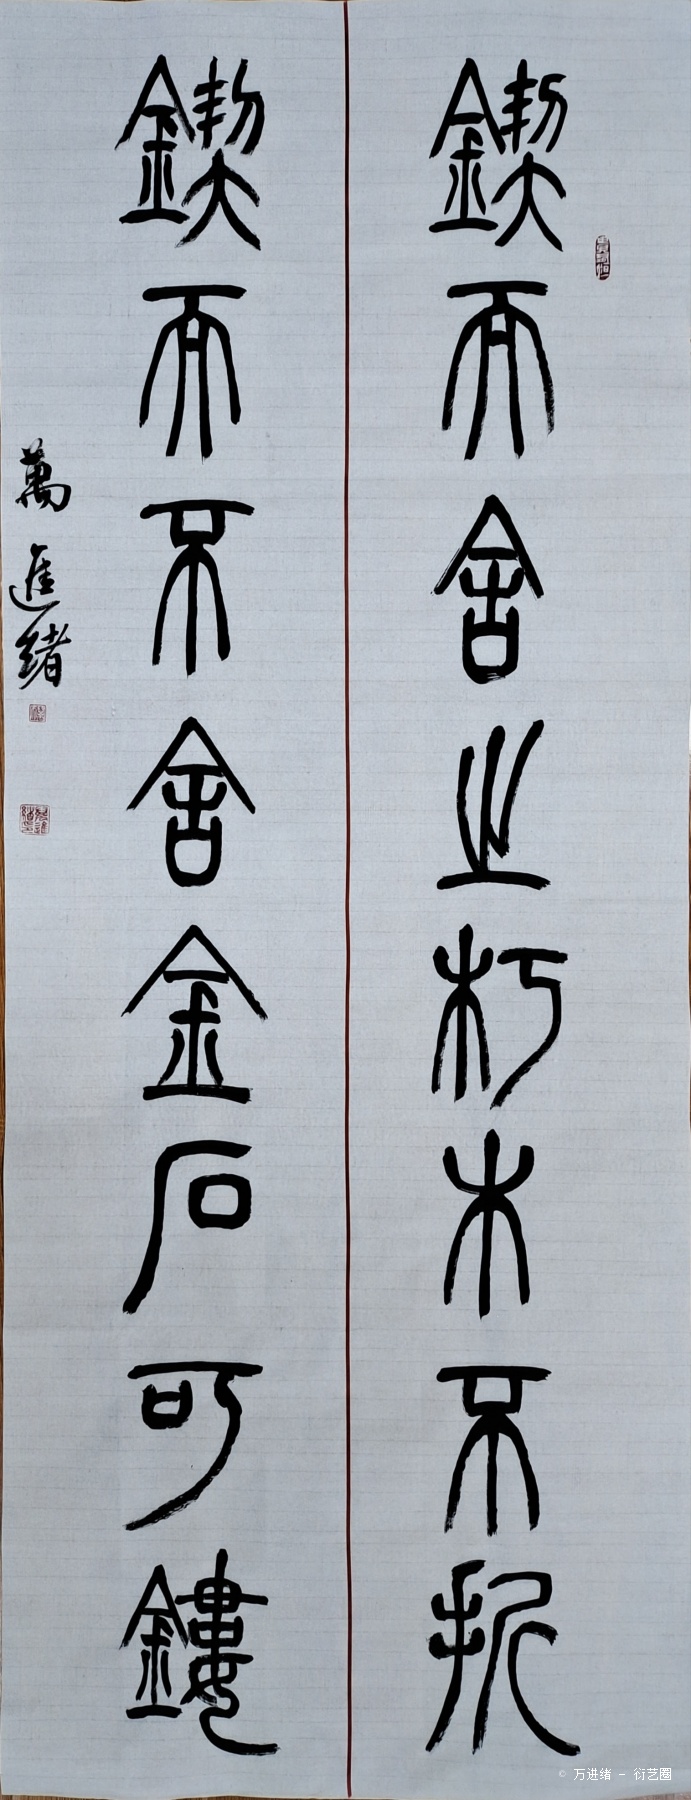 鍥而舍之朽木不折
鍥而不舍金石可鏤
萬進緒
© 万进绪 - 衍艺圈